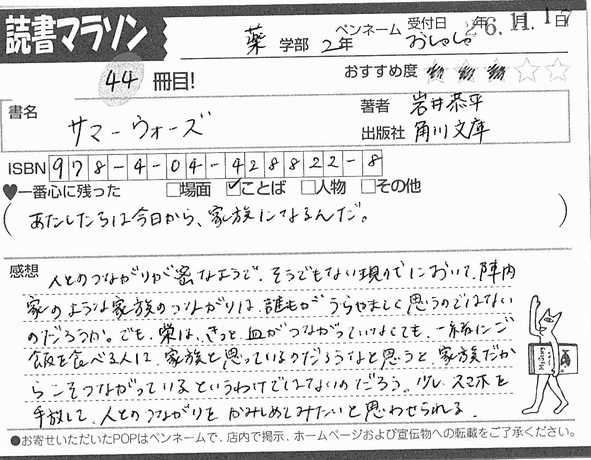 読書マラソン
薬 学部 2年 ペンネーム おしゅしゅ 受付日 26年11月17日
44 冊目!
おすすめ度 ★★★☆☆
書名 サマーウォーズ
著者 岩井恭平
出版社 角川文庫
ISBN 978-4-04-428822-8
♥一番心に残った □場面 ☑ことば □人物 □その他
(あたしたちは今日から、家族になるんだ。)
感想 人とのつながりが密なようで、そうでもない現代において、陣内
家のような家族のつながりは、誰もがうらやましく思うのではない
のだろうか。でも、栄は、きっと、血がつながっていなくても、一緒にご
飯を食べる人は、家族と思っているのだろうなと思うと、家族だか
らこそつながっているというわけではないのだろう。少し、スマホを
手放して、人とのつながりをかみしめてみたいと思わせられる。
●お寄せいただいたPOPはペンネームで、店内で掲示、ホームページおよび宣伝物への転載をご了承ください。